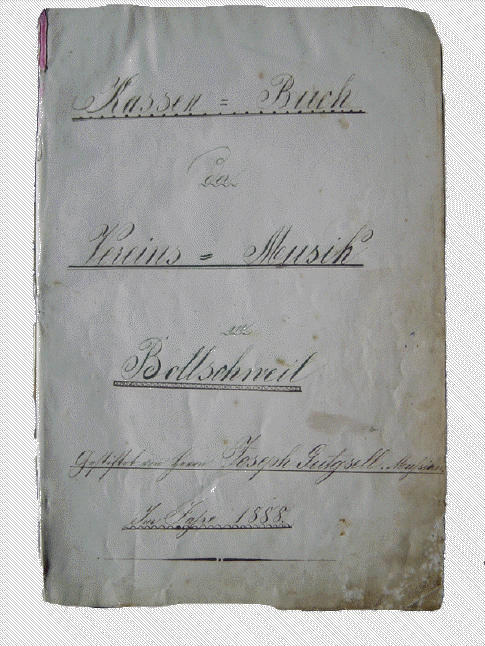 Kassen = Buch
der
Vereins = Musik
in
Bollschweil
Gestiftet von Herrn Joseph Gutgsell, Musiker
Im Jahre 1888.